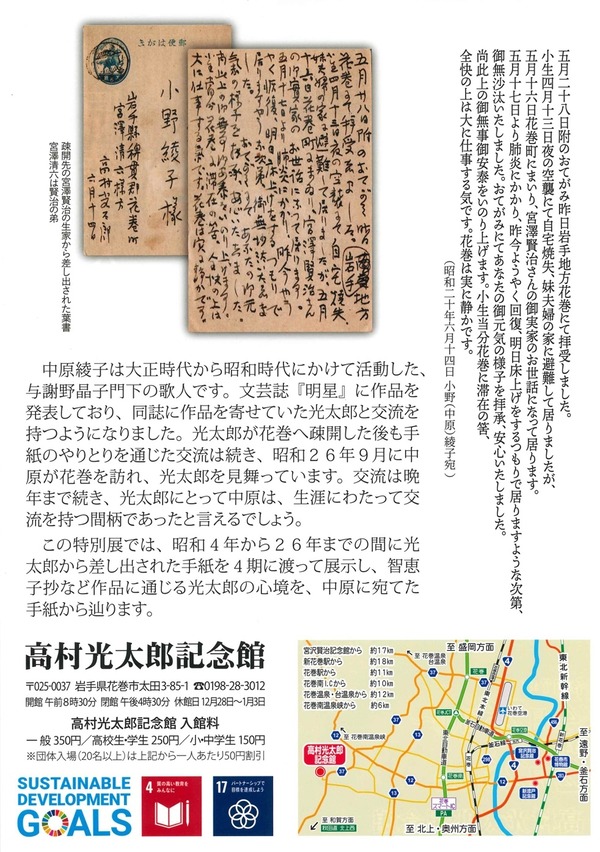 五月二十八日附のおてがみ昨日岩手地方花巻にて拝受しました。
小生四月十三日夜の空襲にて自宅焼失、妹夫婦の家に避難して居りましたが、
五月十六日花巻町にまいり、宮澤賢治さんの御実家のお世話になって居ります。
五月十七日より肺炎にかかり、昨今ようやく回復、明日床上げをするつもりで居りますような次第、
御無沙汰いたしました。おてがみにてあなたの御元気の様子を拝承、安心いたしました。
尚此上の御無事御安泰をいのり上げます。小生当分花巻に滞在の筈、
全快の上は大に仕事する気です。花巻は実に静かです。
(昭和二十年六月十四日 小野(中原)綾子宛)
郵便はがき
小野綾子様
岩手縣稗貫郡花巻町
宮澤清六様方
高村光太郎
六月十四日
疎開先の宮澤賢治の生家から差し出された葉書
宮澤清六は賢治の弟
中原綾子は大正時代から昭和時代にかけて活動した、
与謝野晶子門下の歌人です。文芸誌『明星』に作品を
発表しており、同誌に作品を寄せていた光太郎と交流を
持つようになりました。光太郎が花巻へ疎開した後も手
紙のやりとりを通じた交流は続き、昭和26年9月に中
原が花巻を訪れ、光太郎を見舞っています。交流は晩
年まで続き、光太郎にとって中原は、生涯にわたって交
流を持つ間柄であったと言えるでしょう。
この特別展では、昭和4年から26年までの間に光
太郎から差し出された手紙を4期に渡って展示し、智恵
子抄など作品に通じる光太郎の心境を、中原に宛てた
手紙から辿ります。
高村光太郎記念館
〒025-0037 岩手県花巻市太田3-85-1 ☎0198-28-3012
開館 午前8時30分 閉館 午後4時30分 休館日 12月28日~1月3日
高村光太郎記念館 入館料
一般 350円/高校生・学生 250円/小・中学生 150円
※団体入場(20名以上)は上記から一人あたり50円割引
SUSTAINABLE
DEVELOPMENT
GOALS
4 質の高い教育を
みんなに
17 パートナーシップで
目標を達成しよう
宮沢賢治記念館から 約17km
新花巻駅から 約18km
花巻駅から 約11km
花巻南I.Cから 約10km
花巻温泉・台温泉から 約12km
花巻南温泉峡から 約6km
至 盛岡方面
至 花巻温泉
台温泉
東北新幹線
東北本線
いわて
花巻空港
東北自動車道
釜石線
至 花巻南温泉峡
高村光太郎
記念館
宮沢賢治
記念館
花巻市
博物館
新渡戸
記念館
至 遠野・釜石方面
花巻
スマートIC
PA
至 和賀方面
秋田道 北上西
至 北上・奥州方面